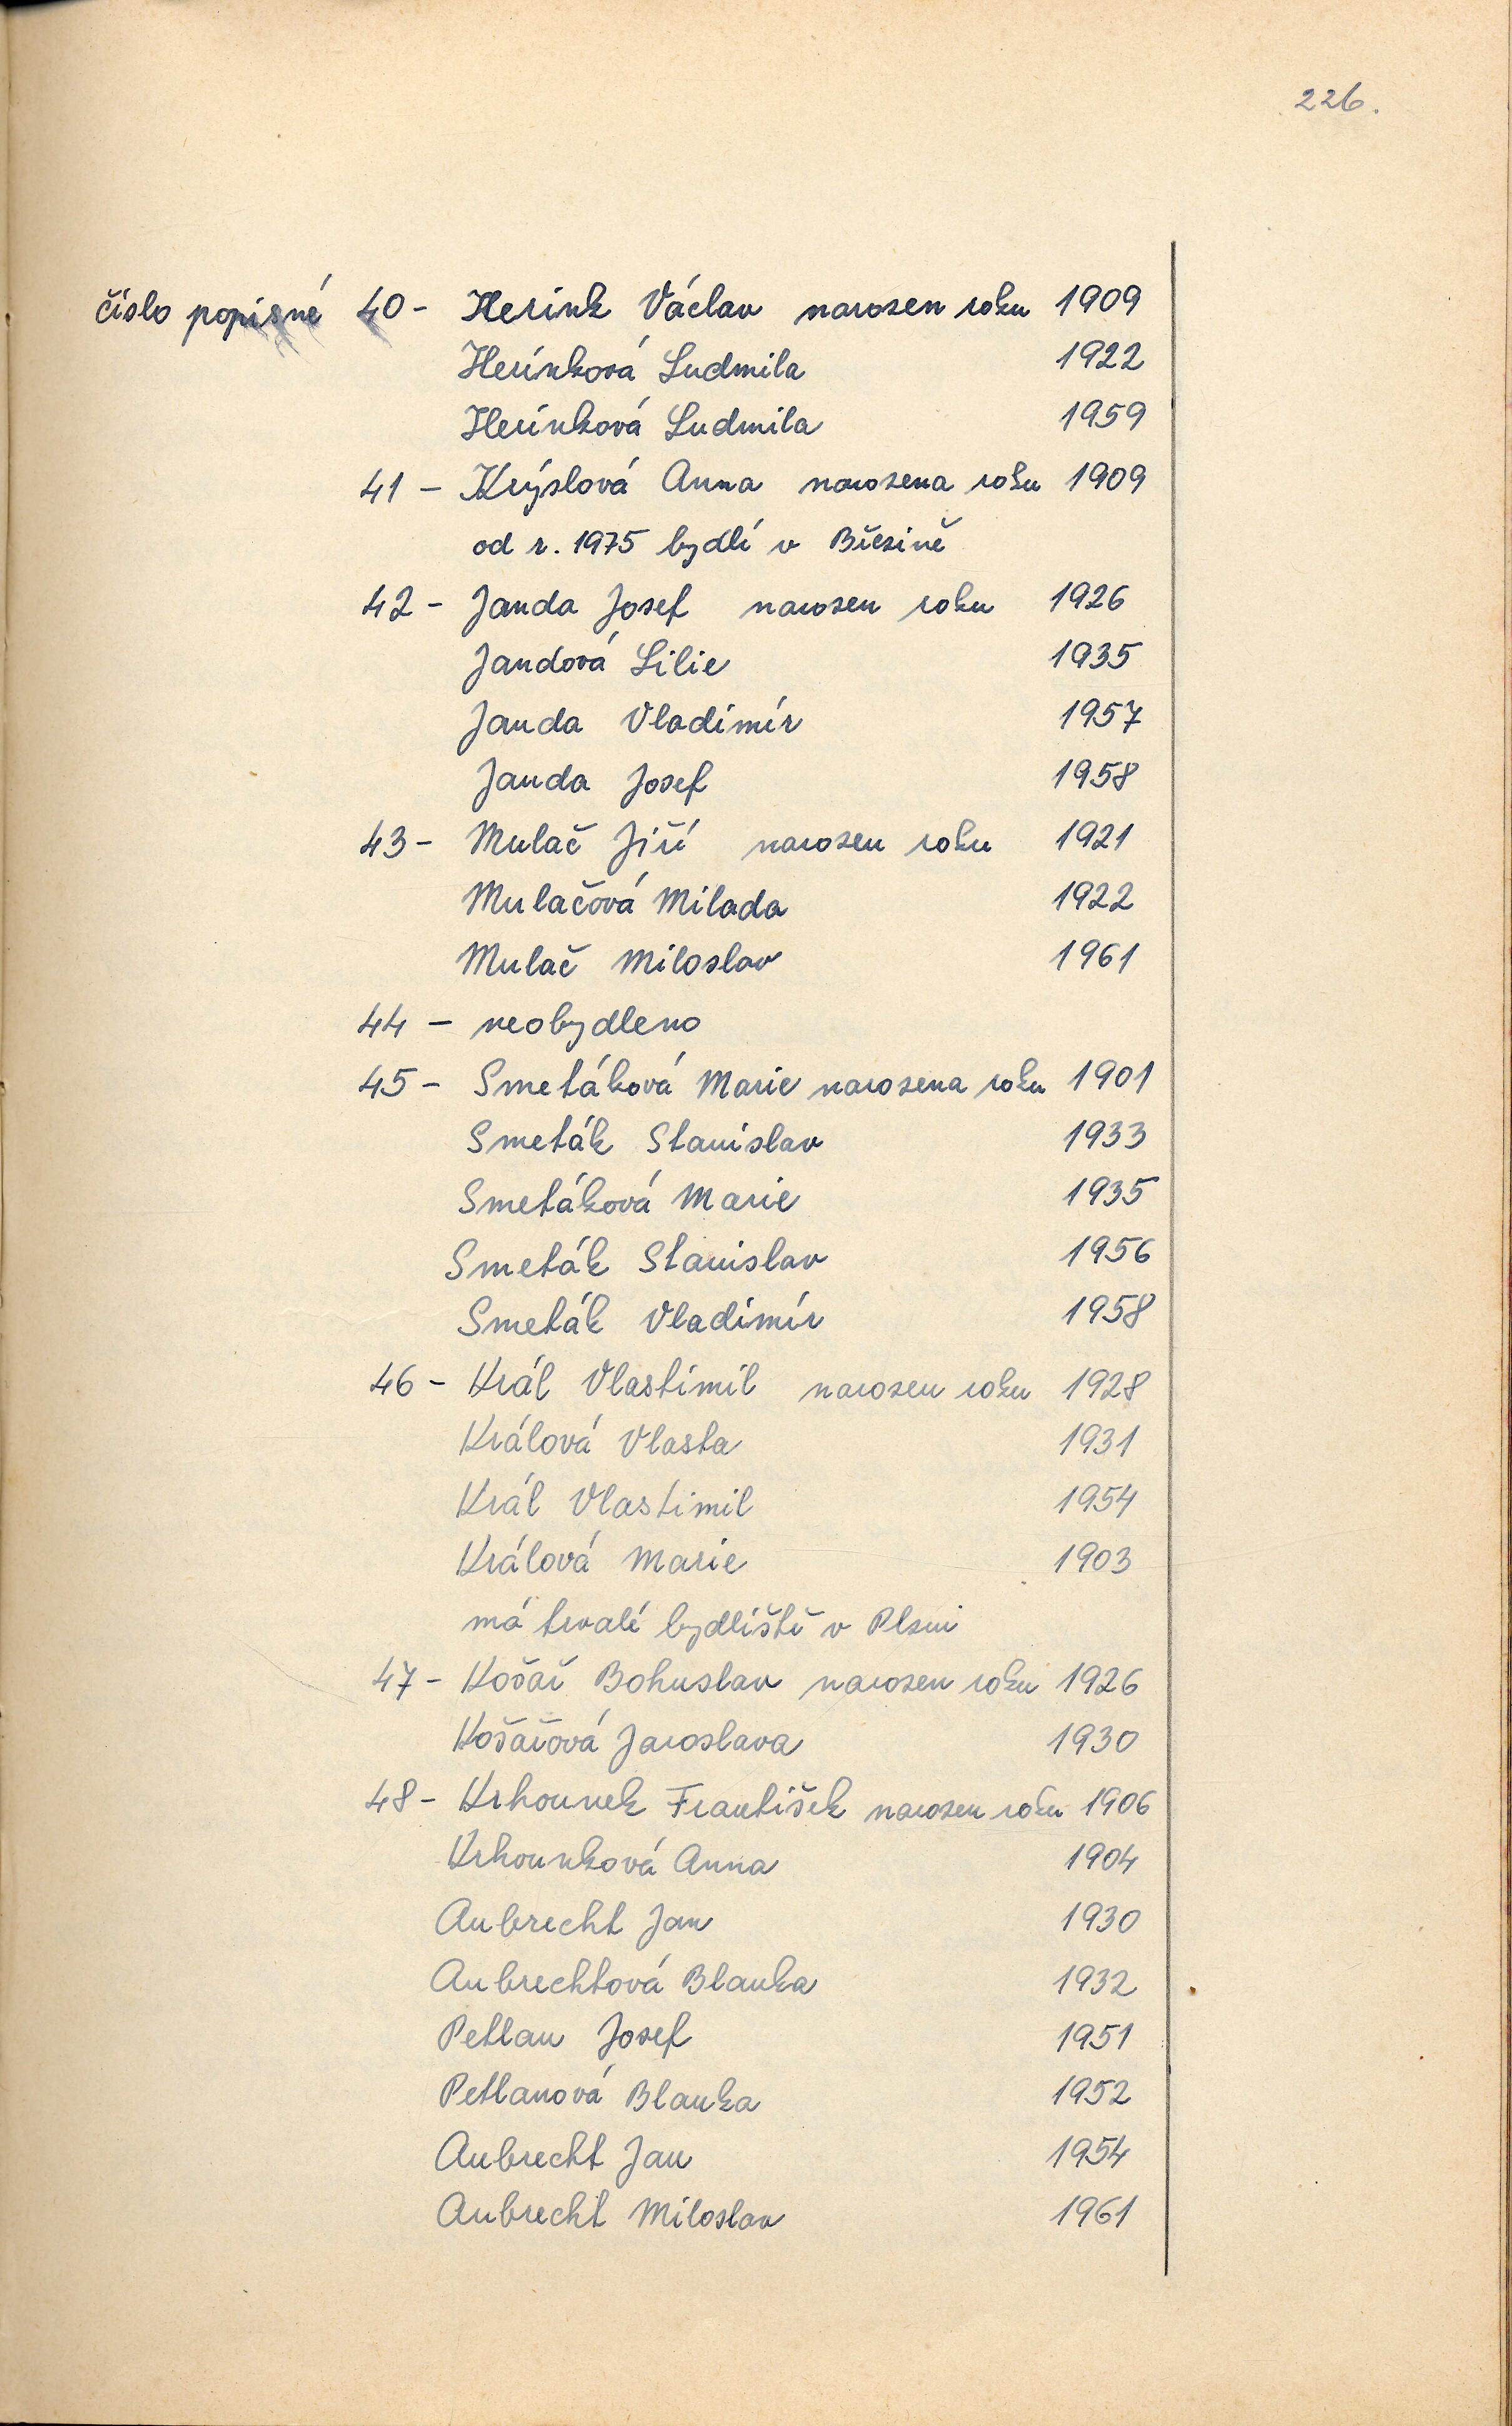 226.
číslo popisné 40 - Herink Václav narozen roku 1909
Herinková Ludmila 1922
Herinková Ludmila 1959
41 - Krýslová Anna narozena roku 1909
od r. 1975 bydlí v Březině
42 - Janda Josef narozen roku 1926
Jandová Lilie 1935
Janda Vladimír 1957
Janda Josef 1958
43 - Mulač Jiří narozen roku 1921
Mulačová Milada 1922
Mulač Miloslav 1961
44 - neobydleno
45 - Smetáková Marie narozena roku 1901
Smeták Stanislav 1933
Smetáková Marie 1935
Smeták Stanislav 1956
Smeták Vladimír 1958
46 - Král Vlastimil narozen roku 1928
Králová Vlasta 1931
Král Vlastimil 1954
Králová Marie 1903
má trvalé bydliště v Plzni
47 - Košař Bohuslav narozen roku 1926
Košařová Jaroslava 1930
48 - Krhounek František narozen roku 1906
Krhounková Anna 1904
Aubrecht Jan 1930
Aubrechtová Blanka 1932
Petlan Josef 1951
Petlanová Blanka 1952
Aubrecht Jan 1954
Aubrecht Miloslav 1961